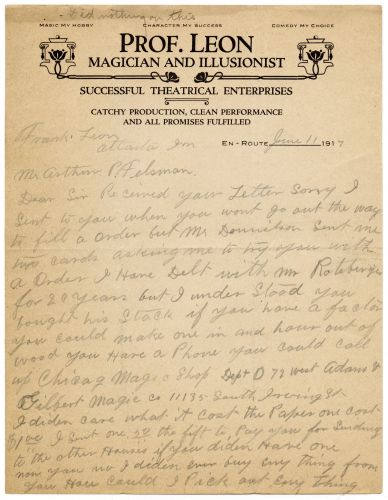 did nothing on this
MAGIC MY HOBBY CHARACTER MY SUCCESS COMEDY MY CHOICE
PROF. LEON
MAGICIAN AND ILLUSIONIST
SUCCESSFUL THEATRICAL ENTERPRISES
CATCHY PRODUCTION, CLEAN PERFORMANCE
AND ALL PROMISES FULFILLED
Frank Leon
EN-ROUTE June 11 1917
Mr Arthur P. Felsman.
Dear Sir Recived your Letter Sorry I
Sent to you when you wont go out the way
to fill a order but Mr Donnilson Sent me
two cards asking me to try you with
a Order I Have Delt with Mr Roteberger
for 20 years but I under Stood you
bought his Stock if you have a factory
you could make one in and hour out of
wood you Have a Phone you could call
up Chicag Magic Shop Dept D 72 West Adams
Gilbert Magic Co 11135 South Irving St
I diden care what it cost the Paper one cost
I Sent one the fift to Pay you for Sending
to the other Houses if you diden Have one
now you no I diden ever buy eny thing from
you How could I Pick out eny thing